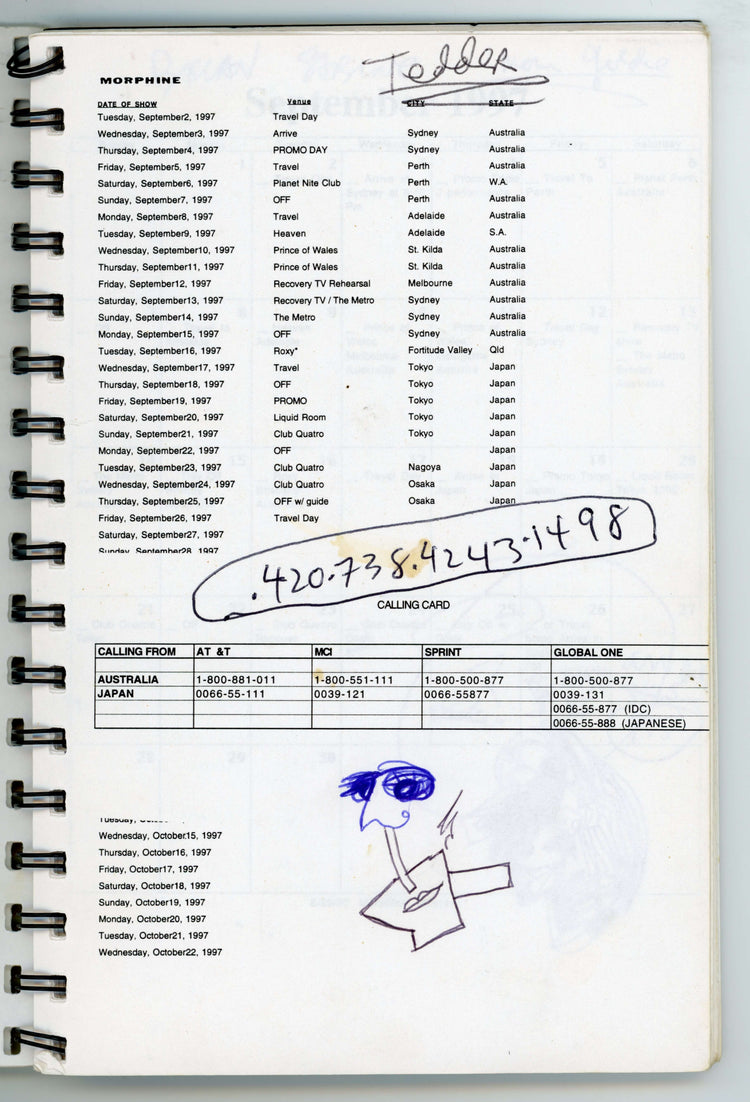 Tedder
MORPHINE
DATE OF SHOW Venue CITY STATE
Tuesday, September2, 1997 Travel Day
Wednesday, September3, 1997 Arrive Sydney Australia
Thursday, September4, 1997 PROMO DAY Sydney Australia
Friday, September5, 1997 Travel Perth Australia
Saturday, September6, 1997 Planet Nite Club Perth W.A.
Sunday, September7, 1997 OFF Perth Australia
Monday, September8, 1997 Travel Adelaide Australia
Tuesday, September9, 1997 Heaven Adelaide S.A.
Wednesday, September10, 1997 Prince of Wales St. Kilda Australia
Thursday, September11, 1997 Prince of Wales St. Kilda Australia
Friday, September12, 1997 Recovery TV Rehearsal Melbourne Australia
Saturday, September13, 1997 Recovery TV / The Metro Sydney Australia
Sunday, September14, 1997 The Metro Sydney Australia
Monday, September15, 1997 OFF Sydney Australia
Tuesday, September16, 1997 Roxy* Fortitude Valley Qld
Wednesday, September17, 1997 Travel Tokyo Japan
Thursday, September18, 1997 OFF Tokyo Japan
Friday, September19, 1997 PROMO Tokyo Japan
Saturday, September20, 1997 Liquid Room Tokyo Japan
Sunday, September21, 1997 Club Quatro Tokyo Japan
Monday, September22, 1997 OFF Japan
Tuesday, September23, 1997 Club Quatro Nagoya Japan
Wednesday, September24, 1997 Club Quatro Osaka Japan
Thursday, September25, 1997 OFF w/ guide Osaka Japan
Friday, September26, 1997 Travel Day
Saturday, September27, 1997
Sunday, September28, 1997
.420.738.4243.1498
CALLING CARD
CALLING FROM AT &T MCI SPRINT GLOBAL ONE
AUSTRALIA 1-800-881-011 1-800-551-111 1-800-500-877 1-800-500-877
JAPAN 0066-55-111 0039-121 0066-55877 0039-131
0066-55-877 (IDC)
0066-55-888 (JAPANESE)
Wednesday, October15, 1997
Thursday, October16, 1997
Friday, October17, 1997
Saturday, October18, 1997
Sunday, October19, 1997
Monday, October20, 1997
Tuesday, October21, 1997
Wednesday, October22, 1997